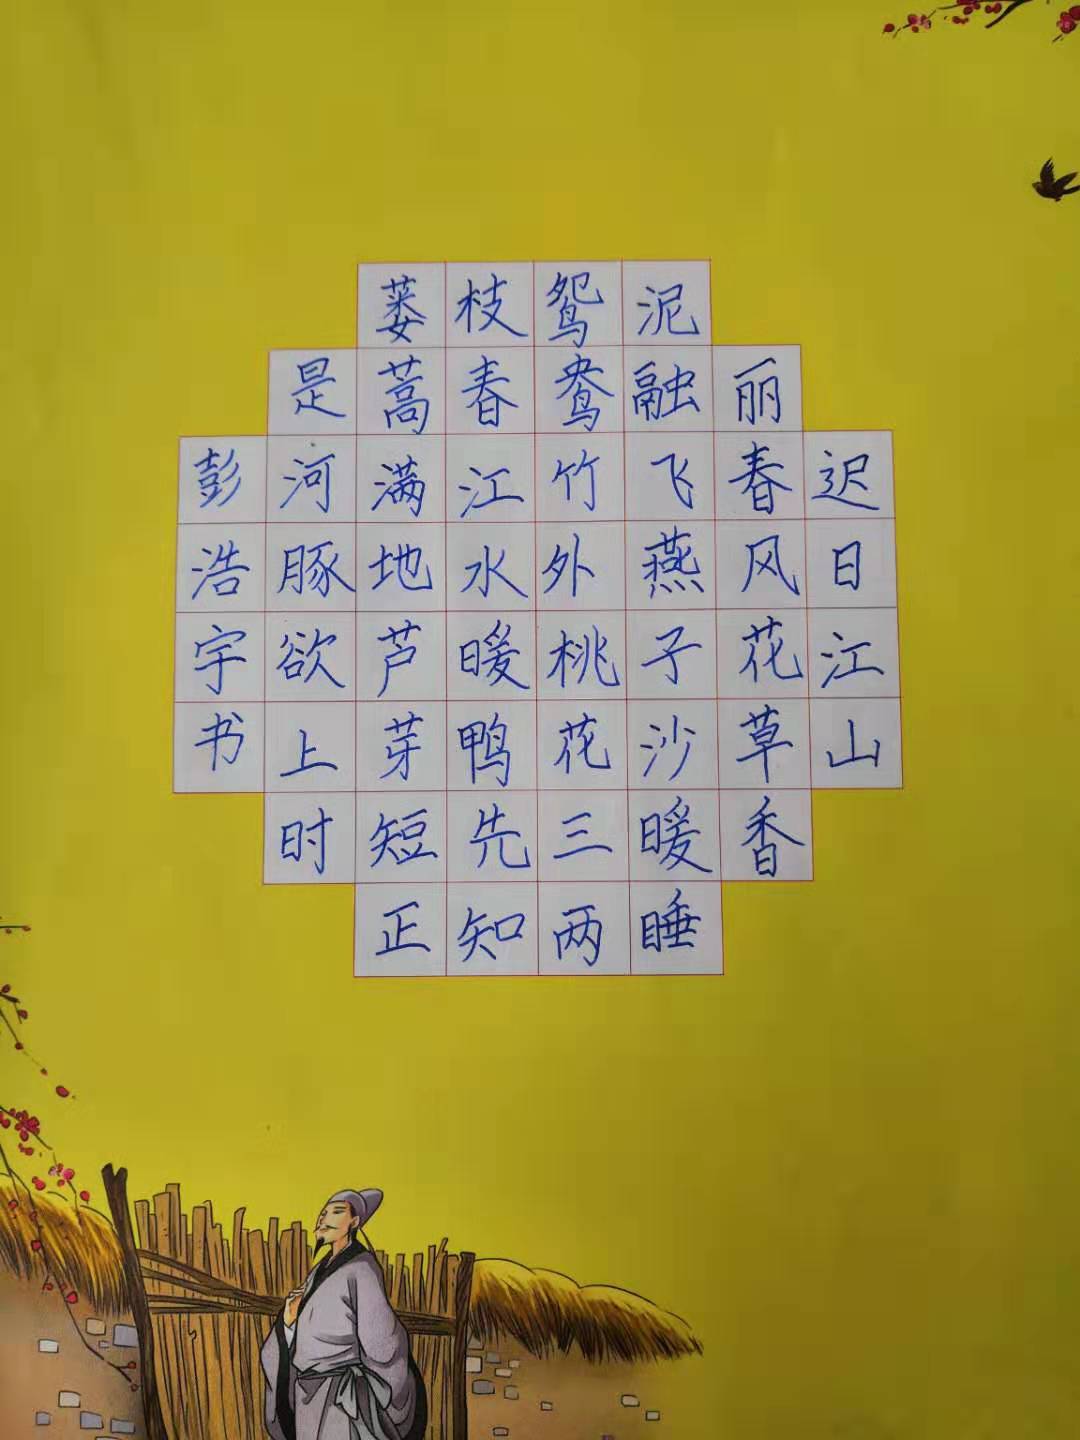 迟日江山
丽春风花草香
泥融飞燕子沙暖睡
鸳鸯竹外桃花三两
枝春江水暖鸭先知
蒌蒿满地芦芽短正
是河豚欲上时
彭浩宇书